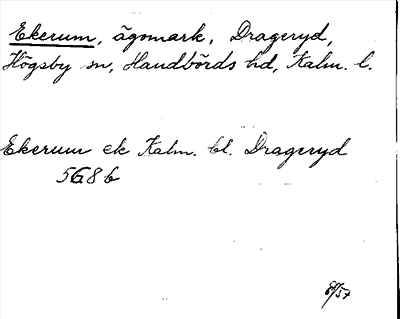 Ekerum, ägomark, Drageryd,
Högsby sn, Handbörds hd, Kalm. l.
Ekerum ek Kalm. bl. Drageryd
5G8b